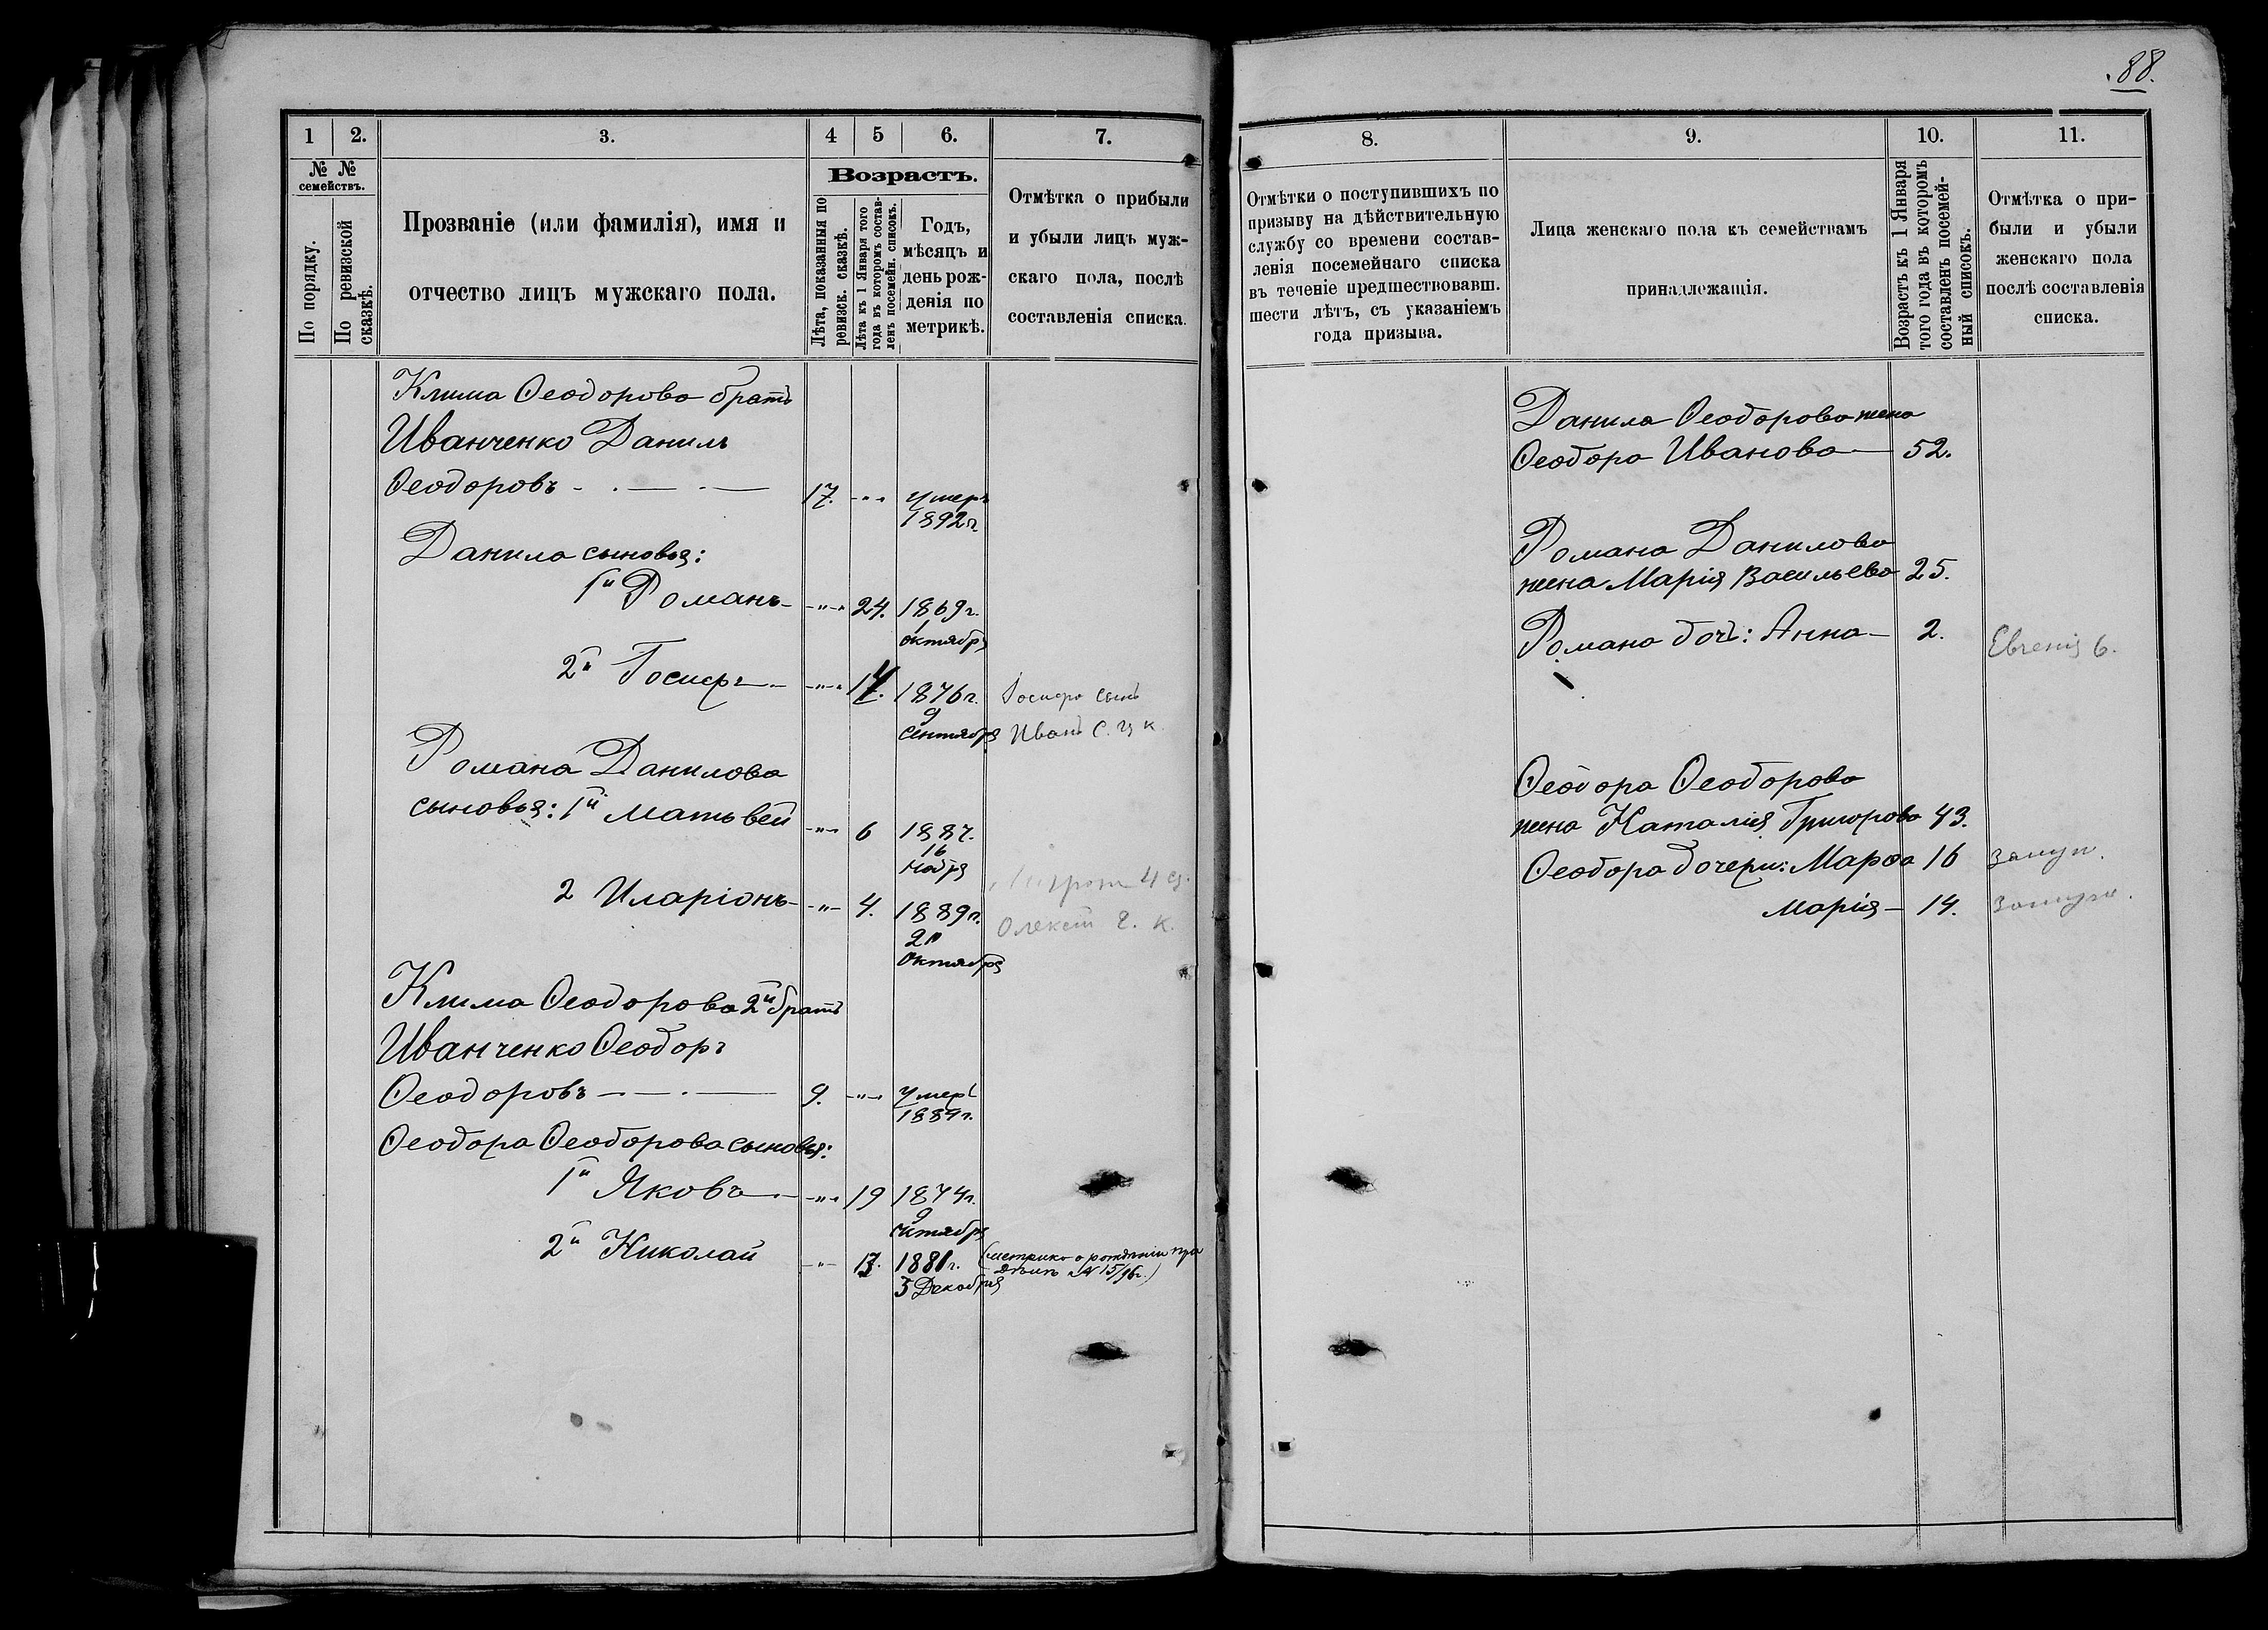 88.
1
2.
3.
4
5
6.
7.
№ №
семействъ.
По порядку.
По ревизской
сказкѣ.
Прозваніе (или фамилія), имя и
отчество лицъ мужскаго пола.
Возрастъ.
Лѣта, показанныя по
ревизск. сказкѣ.
Лѣта къ 1 Января того
года въ которомъ состав-
ленъ посемейн. списокъ.
Годъ,
мѣсяцъ и
день рож-
денія по
метрикѣ.
Отмѣтка о прибыли
и убыли лицъ муж-
скаго пола, послѣ
составленія списка.
Клима Ѳеодорова братъ
Иванченко Данилъ
Ѳеодоровъ 17. умеръ
1892 г.
Данила сыновья:
1й Романъ 24. 1869 г.
1
октября
2й Іосифъ 1876 г. Іосифа сынъ
9
Сентября Иванъ
Романа Данилова
сыновья: 1й Матвѣй 6 1887.
16
Ноября
2 Иларіонъ 4. 1889 г.
Октября
Клима Ѳеодорова 2й братъ
Иванченко Ѳеодоръ
Ѳеодоровъ 9. Умеръ
1889 г.
Ѳеодора Ѳеодорова сыновья:
1й Яковъ 19 1874 г.
9
октября
2й Николай 13. 1881 г. (метрика о рожденіи при
5 Декабря № 15/96 г.)
8.
9.
10.
11.
Отмѣтки о поступившихъ по
призыву на дѣйствительную
службу со времени состав-
ленія посемейнаго списка
въ теченіе предшествовавш.
шести лѣтъ, съ указаніемъ
года призыва.
Лица женскаго пола къ семействамъ
принадлежащія.
Возрастъ къ 1 Января
того года въ которомъ
составленъ посемей-
ный списокъ.
Отмѣтка о при-
были и убыли
женскаго пола
послѣ составленія
списка.
Данила Ѳеодорова жена
Ѳеодора Иванова 52.
Романа Данилова
жена Марія Васильева 25.
Романа доч: Анна 2. Евгенія 6.
Ѳеодора Ѳеодорова
жена Наталія Григорова 43.
Ѳеодора дочери: Марѳа 16 замуж.
Марія 14. замуж.